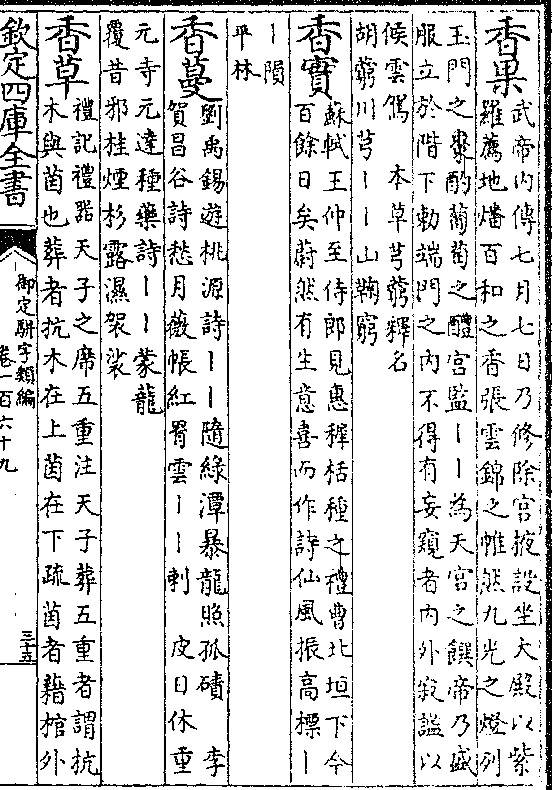 香果
武帝內傳七月七日乃修除宮掖設坐大殿以紫
羅薦地燔百和之香張雲錦之帷然九光之燈列
玉門之棗酌蔔萄之醴宮監丨丨為天宮之饌帝乃盛
服立於階下勅端門之內不得有妄窺者內外寂謐以
候雲駕
本草芎藭釋名
胡藭川芎丨丨山鞠窮
香實
蘇軾王仲至侍郎見惠穉栝種之禮曹北垣下今
百餘日矣蔚然有生意喜而作詩仙風振高標丨
丨隕
平林
香蔓
劉禹錫遊桃源詩丨丨隨綠潭暴龍照孤磧
李
賀昌谷詩愁月薇帳紅罥雲丨丨刺
皮日休重
元寺元達種藥詩丨丨蒙龍
覆昔邪桂煙杉露濕袈裟
香草
禮記禮器天子之席五重注天子葬五重者謂抗
木與茵也葬者抗木在上茵在下疏茵者藉棺外
欽定四庫全書
御定駢字類編
卷一百六十九
三十五